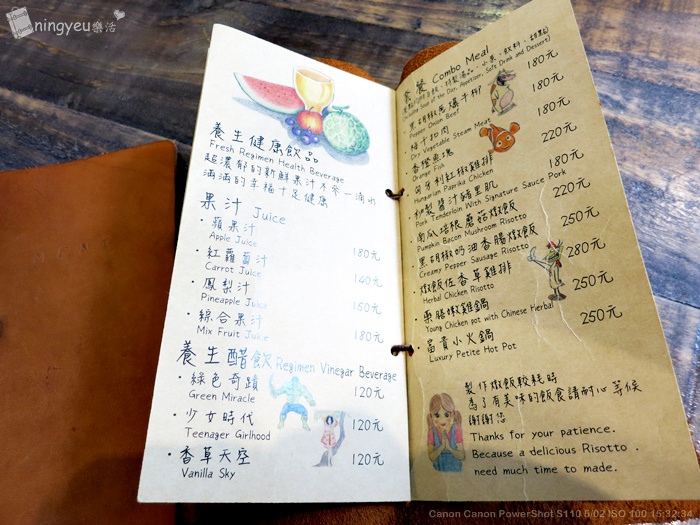 ningyeu樂活
養生健康飲品
Fresh Regimen Health Beverage
超濃郁的新鮮果汁不來一滴水
滿滿的幸福十足健康
果汁 Juice
・蘋果汁 180元
Apple Juice
・紅蘿蔔汁 140元
Carrot Juice
・鳳梨汁 150元
Pineapple Juice
・綜合果汁 180元
Mix Fruit Juice
養生醋飲 Regimen Vinegar Beverage
・綠色奇蹟 120元
Green Miracle
・少女時代 120元
Teenager Girlhood
・香草天空 120元
Vanilla Sky
套餐 Combo Meal
(Including Soup of the Day, Appetizer, Soft Drink and Dessert)
・黑胡椒蔥爆牛柳 180元
Pepper Onion Beef
・梅干扣肉 180元
Dry Vegetable Steam Meat
・香橙魚塊 220元
Orange Fish
・匈牙利紅椒雞排 180元
Hungarian Paprika Chicken
・秘製醬汁豬里肌 220元
Pork Tenderloin With Signature Sauce Pork
・南瓜培根蘑菇燉飯 250元
Pumpkin Bacon Mushroom Risotto
・黑胡椒奶油香腸燉飯 280元
Creamy Pepper Sausage Risotto
・燉飯佐香草雞排 250元
Herbal Chicken Risotto
・藥膳嫩雞鍋 250元
Young Chicken pot with Chinese Herbal
・富貴小火鍋
Luxury Petite Hot Pot
製作燉飯較耗時
為了有美味的飯食請耐心等候
謝謝您
Thanks for your patience.
Because a delicious Risotto
need much time to made.
Canon Canon PowerShot S110 5/02 ISO 100 15:32:34